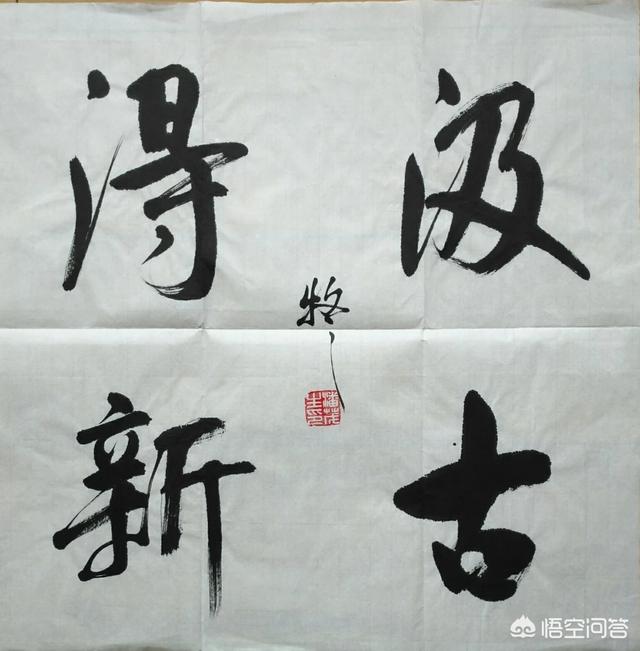 汲古
得新
悟空问答